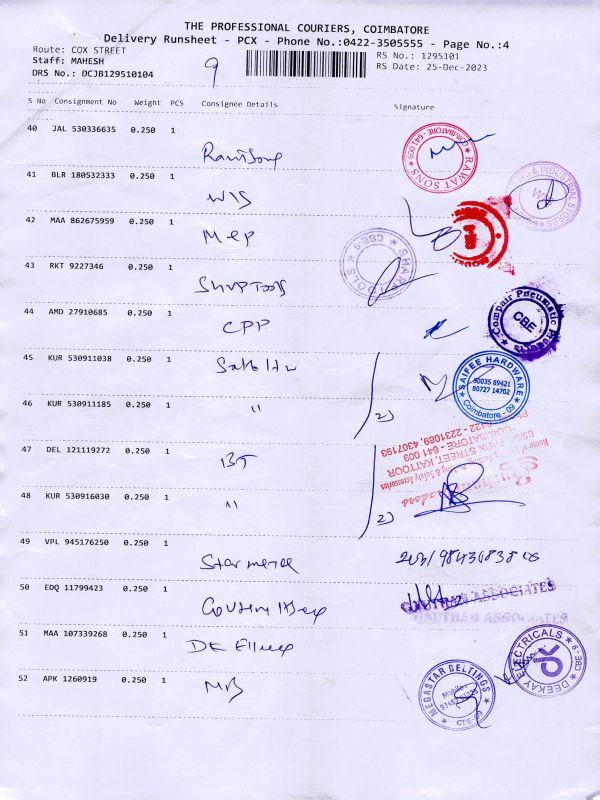 THE PROFESSIONAL COURIERS, COIMBATORE
Delivery Runsheet - PCX - Phone No.:0422-3505555 - Page No.:4
Route: COX STREET
RS No.: 1295101
Staff: MAHESH
RS Date: 25-Dec-2023
DRS No.: DCJB129510104
9
S No Consignment No Weight PCS Consignee Details Signature
40 JAL 530336635 0.250 1
RAWAT SONS
COIMBATORE - 641 009
41 BLR 180532333 0.250 1
WIS
& INDUSTRIAL STORES
42 MAA 862675959 0.250 1
MEP
43 RKT 9227346 0.250 1
CBE-9
44 AMD 27910685 0.250 1
CPP
Compair Pneumatic
CBE
45 KUR 530911038 0.250 1
SAIFEE HARDWARE
90035 89421
80727 14702
Coimbatore - 09
46 KUR 530911185 0.250 1
"
2)
47 DEL 121119272 0.250 1
BT
& Safety Accessories
PARK STREET, KATTOOR
COIMBATORE - 641 009
0422 - 2231089, 4307193
48 KUR 530916030 0.250 1
"
2)
49 VPL 945176250 0.250 1
50 EDQ 11799423 0.250 1
GAUTHAM ASSOCIATES
GAUTHAM ASSOCIATES
51 MAA 107339268 0.250 1
DEEKAY ELECTRICALS
CBE - 9
52 APK 1260919 0.250 1
MB
MEGASTAR BELTINGS
Mobile
CBE-09